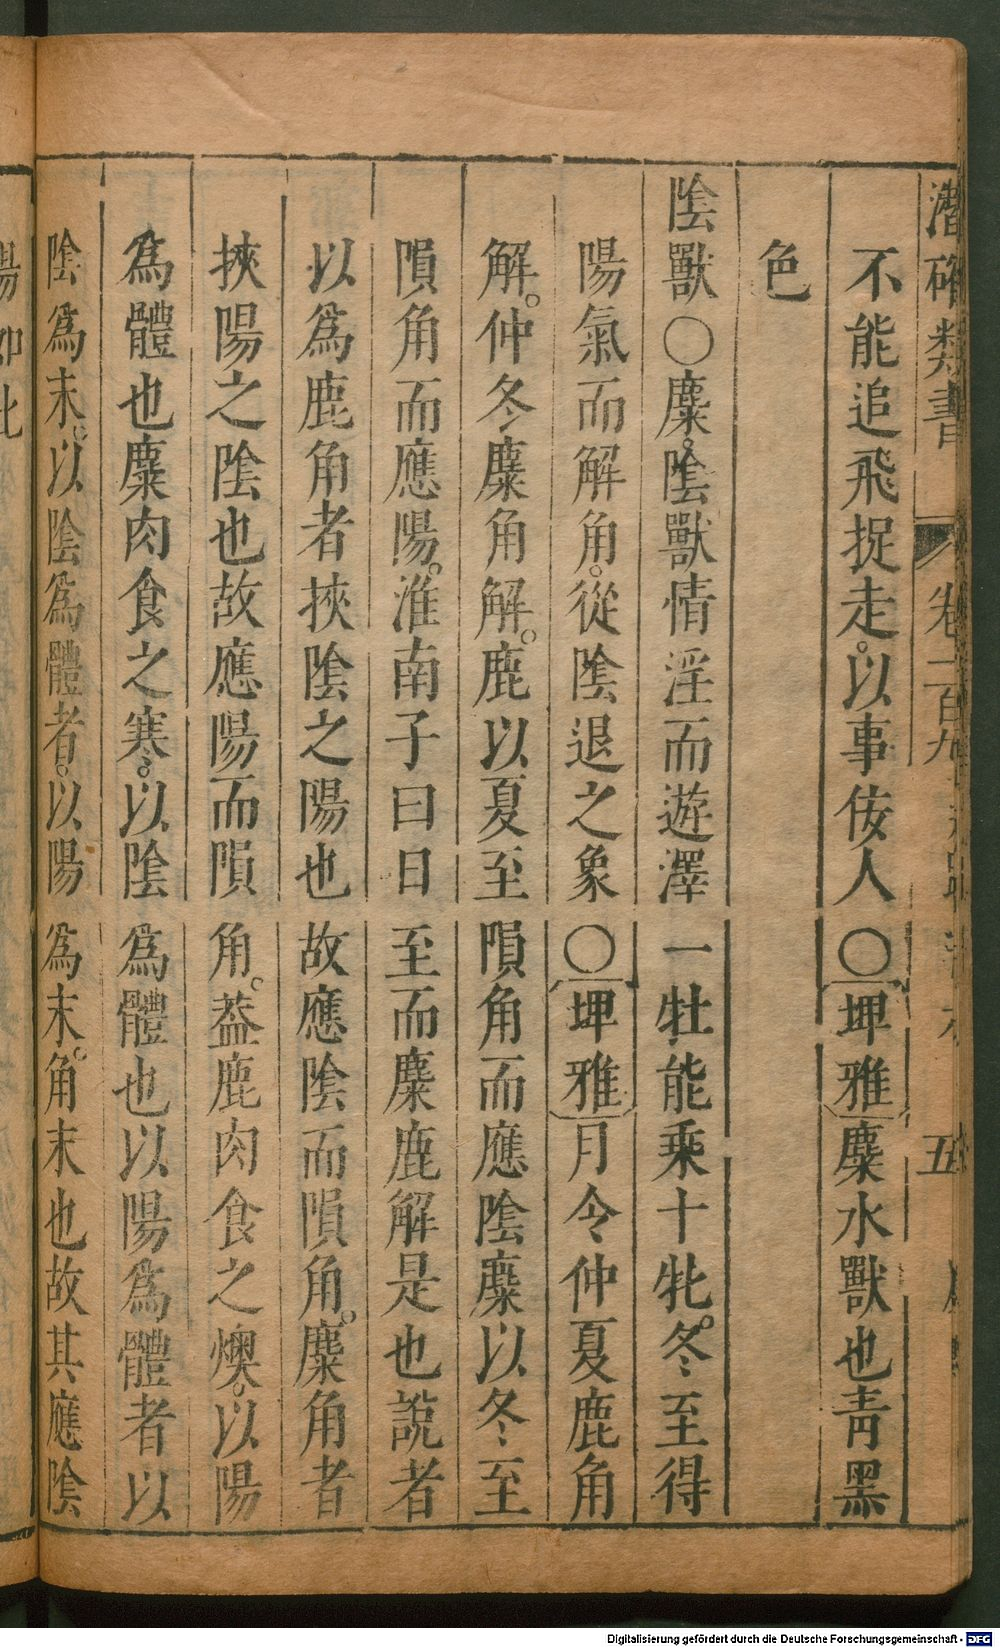 潛確類書 卷一百九 五
不能追飛捉走。以事佞人〇埤雅麋水獸也青黑
色
陰獸〇麋。陰獸情淫而遊澤一牡能乘十牝。冬至得
陽氣而解角。從陰退之象〇埤雅月令仲夏鹿角
解。仲冬麋角解。鹿以夏至隕角而應陰麋以冬至
隕角而應陽。淮南子曰日至而麋鹿解是也說者
以為鹿角者挾陰之陽也故應陰而隕角。麋角者
挾陽之陰也故應陽而隕角。葢鹿肉食之燠。以陽
為體也麋肉食之寒。以陰為體也以陽為體者以
陰為末。以陰為體者。以陽為末。角末也故其應陰
Digitalisierung gefördert durch die Deutsche Forschungsgemeinschaft - DFG